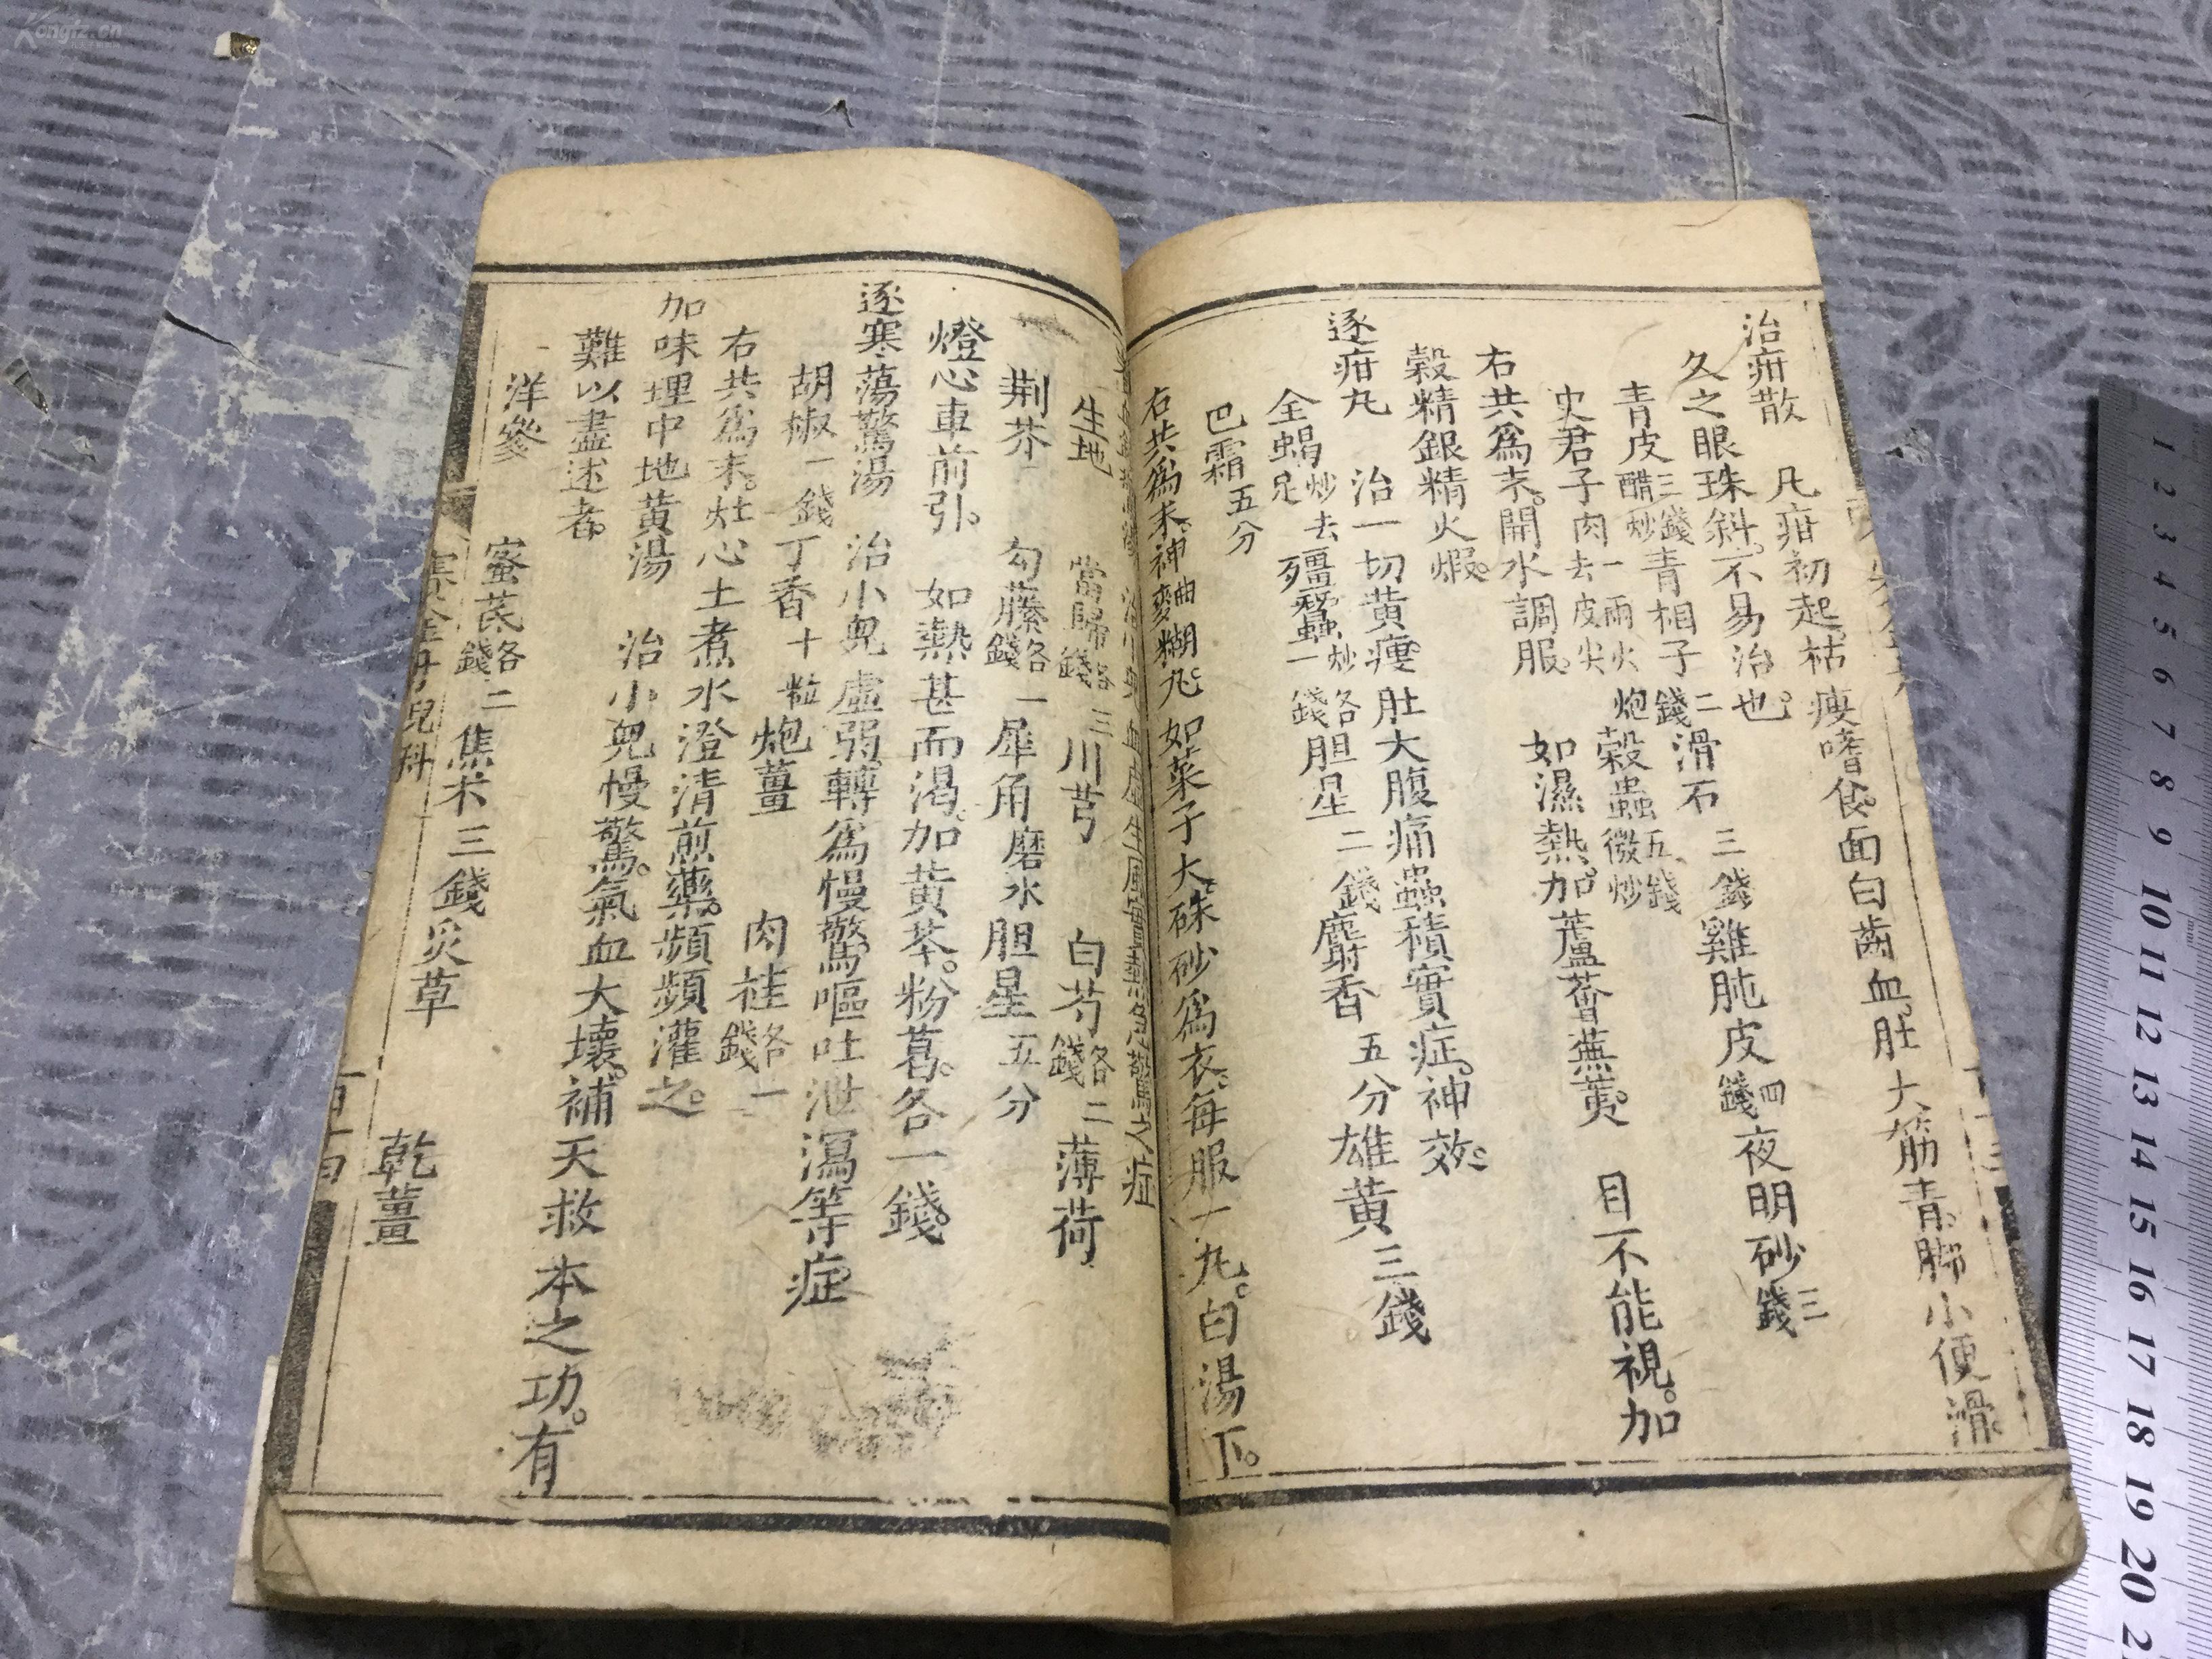 治疳散　凡疳初起。枯瘦嗜食。面白齒血。肚大筋青。脚小便滑。
久之眼珠斜。不易治也。
青皮三錢醋炒　青相子二錢　滑石三錢　雞肫皮四錢　夜明砂三錢
史君子肉一兩火炮去皮尖　穀蟲五錢微炒
右共爲末。開水調服。　如濕熱。加蘆薈蕪荑。　目不能視。加
穀精銀精火煅。
逐疳丸　治一切黄瘦肚大腹痛蟲積實症。神效。
全蝎炒去足　殭蠶炒各一錢　胆星二錢　麝香五分　雄黄三錢
巴霜五分
右共爲末。神曲麥糊丸。如菜子大。硃砂爲衣。每服一丸。白湯下。
生地　當歸各三錢　川芎　白芍各二錢　薄荷
荆芥　勾藤各一錢　犀角磨水　胆星五分
燈心車前引。　如熱甚而渴。加黄芩。粉葛。各一錢。
逐寒蕩驚湯　治小兒虛弱轉爲慢驚嘔吐泄瀉等症
胡椒一錢　丁香十粒　炮薑　肉桂各一錢
右共爲末。灶心土煮水澄清煎藥。頻頻灌之。
加味理中地黄湯　治小兒慢驚。氣血大壞。補天救本之功。有
難以盡述者。
洋參　蜜芪各二錢　焦术三錢　炙草　乾薑
兒科
1 2 3 4 5 6 7 8 9 10 11 12 13 14 15 16 17 18 19 20
Kongfz.cn